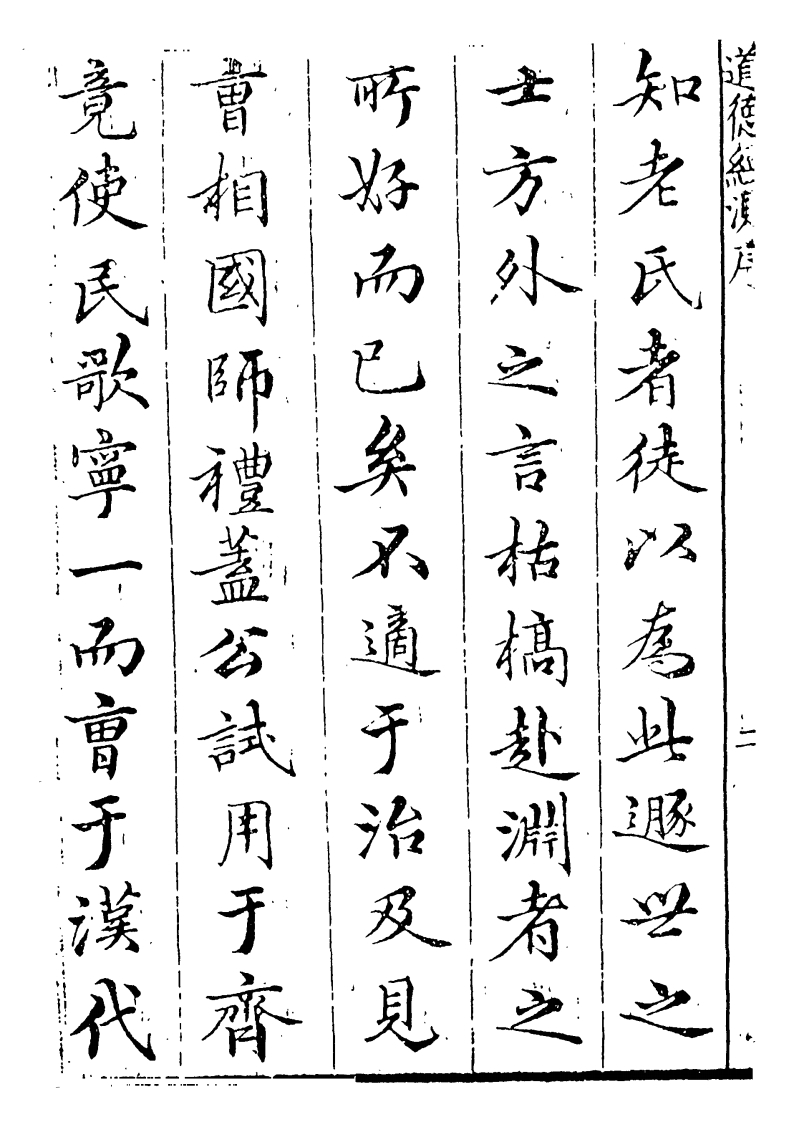 知老氏者徒以為此遯世之
士方外之言枯槁赴淵者之
所好而已矣不適于治及見
曹相國師禮蓋公試用于齊
竟使民歌寧一而曹于漢代
道德經
二